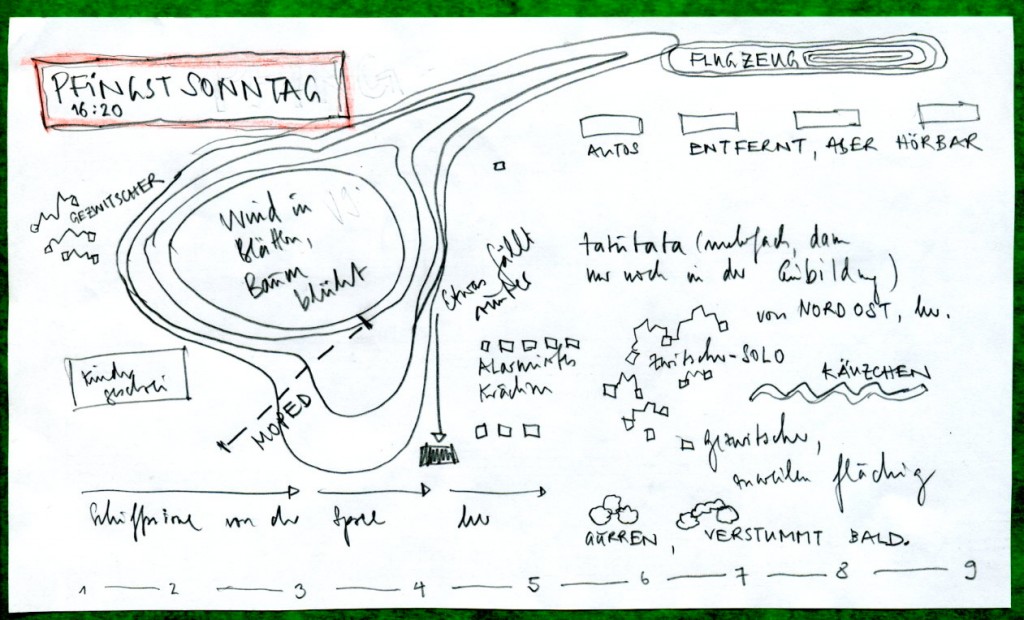 PFINGSTSONNTAG
16:20
FLUGZEUG
AUTOS ENTFERNT, ABER HÖRBAR
GEZWITSCHER
Wind in
Blättern,
Baum
blüht
Etwas fällt
runter
tatütata (mehrfach, dann
nur noch in der Einbildung)
von NORDOST, her.
Zwitscher-SOLO
KÄUZCHEN
Alarmiertes
Krächzen
Kinder
geschrei
MOPED
gezwitscher,
zuweilen flächig
Schiffssirene von der Spree her
GURREN, VERSTUMMT BALD.
1 2 3 4 5 6 7 8 9